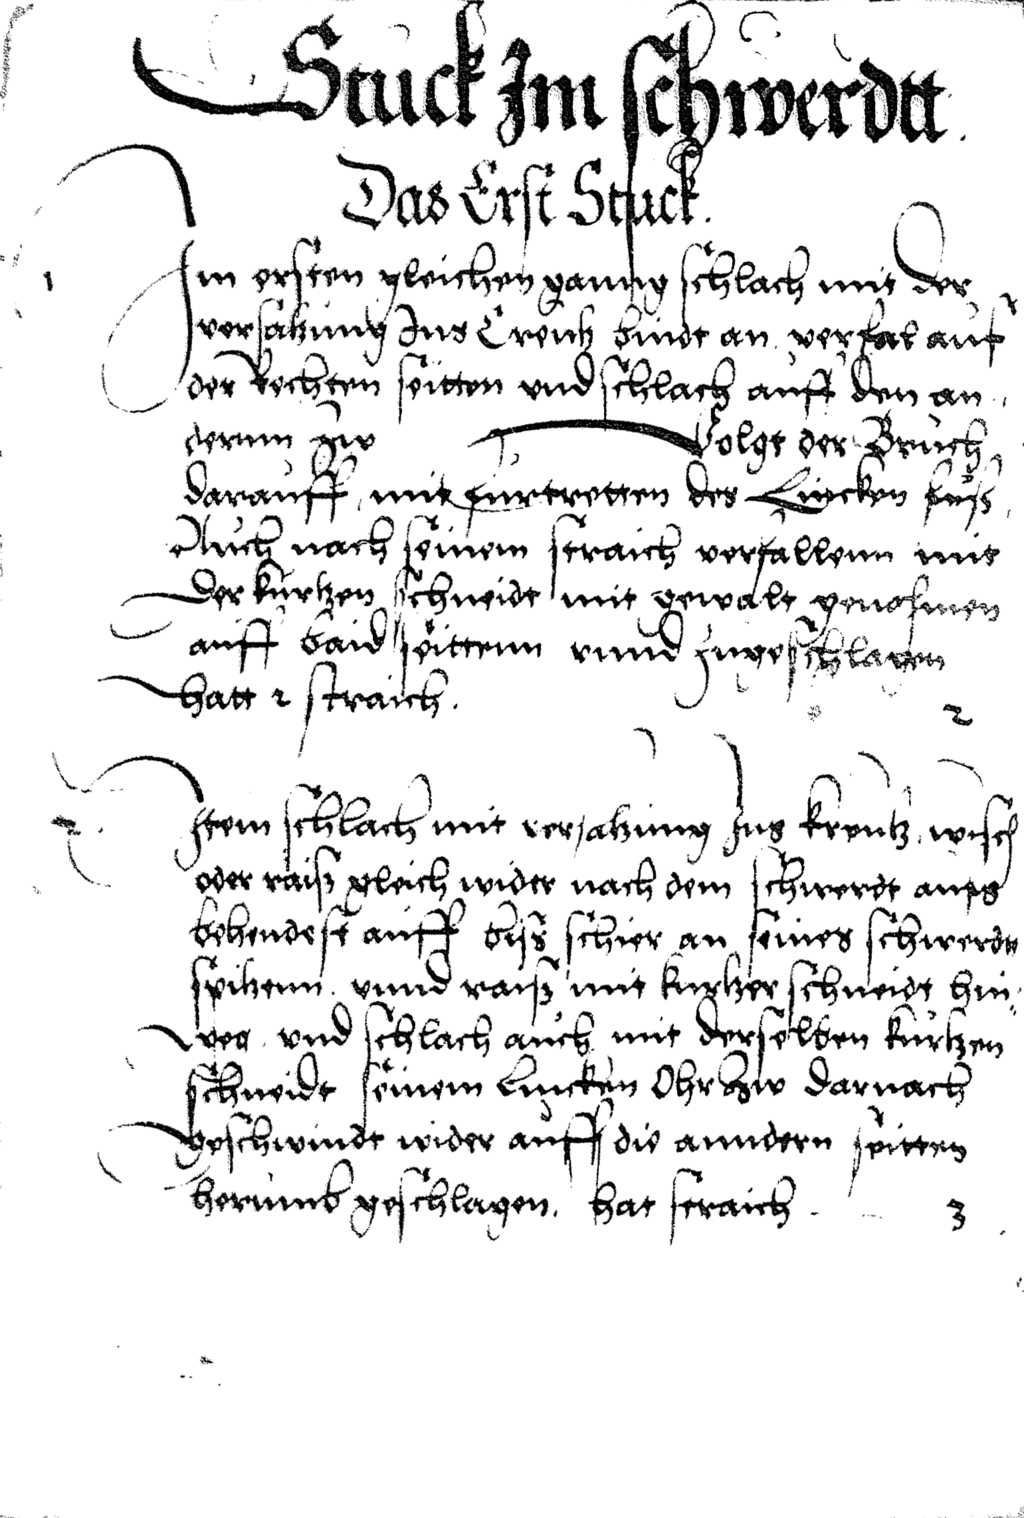 Stuck Im schwerdtt.
Das Erst Stuck.
1 Im ersten gleichen ganng schlach mit der
versatzung Ins Creutz bindt an verfal auf
der Rechten seitten vnd schlach auff den an
dernn zw Volgt der Bruch
darauff, mit furtretten des Lincken fuß
Auch nach seinem straich verfallenn mit
der kurtzen schneidt mit gewalt genohmen
auff baid seittenn vnnd Zugeschlagen
hatt 2 straich. 2
2. Item schlach mit versatzung Ins kreutz, wisch
oder raiß gleich wider nach dem schwerdt aufs
behendest auff biß schier an seines schwerdts
spitzenn vnnd raiß mit kurtzer schneidt hin
weg vnd schlach auch mit derselben kurtzen
schneidt seinem Lincken Ohr zw darnach
geschwindt wider auff die anndern seitten
herumb geschlagen. hat straich. 3